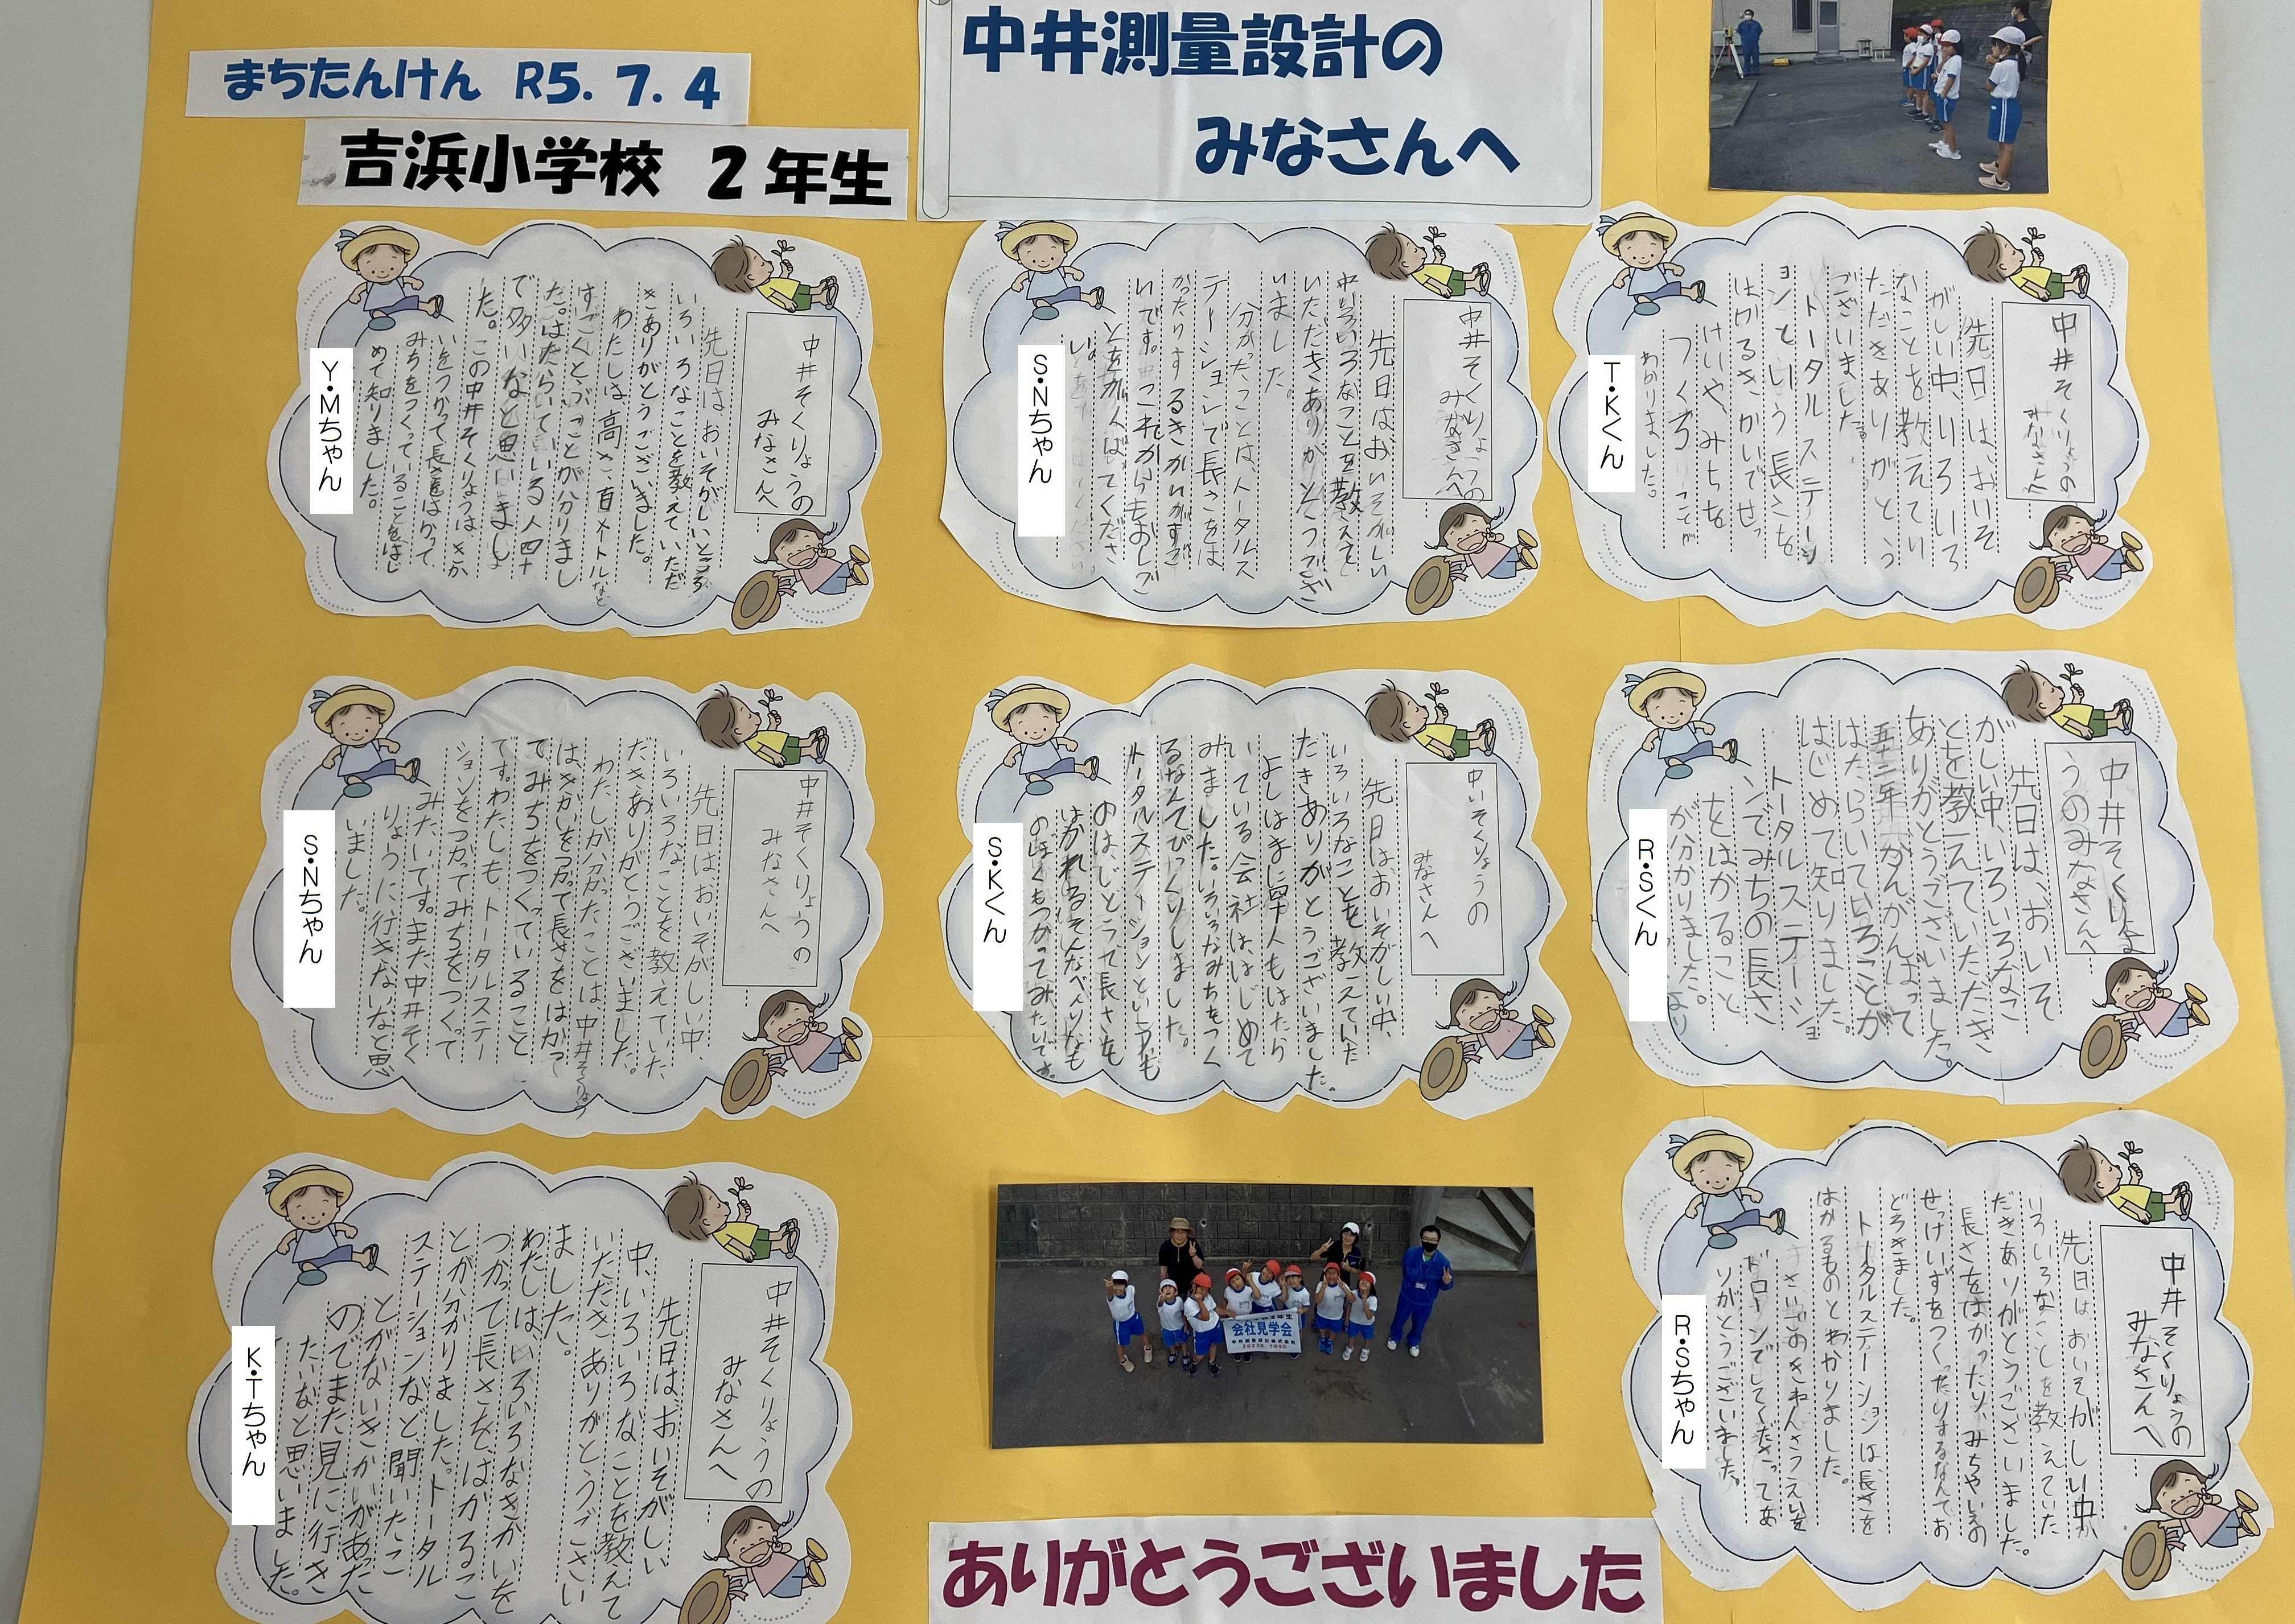 まちたんけん R5.7.4
吉浜小学校 2年生
中井測量設計の
みなさんへ
Y・Mちゃん
中井そくりょうの
みなさんへ
先日はおいそがしいところ
いろいろなことを教えていただ
きありがとうございました。
わたしは高さ百メートルなど
すごくとぶことが分りまし
た。はたらいている人四十
で多いなと思いまし
た。この中井そくりょうは きか
いをつかって長さをはかって
みちをつくっていることをはじ
めて知りました。
S・Nちゃん
中井そくりょうの
みなさんへ
先日はおいそがしい
中いろいろなことを教えて
いただきありがとうござ
いました。
分かったことは、トータルス
テーションで長さをは
かったりするきかいがすご
いです。これからもおしご
とをがんばってくださ
T・Kくん
中井そくりょうの
みなさんへ
先日は、おいそ
がしい中、いろいろ
なことを教えてい
ただきありがとう
ございました。
トータルステーシ
ョンという長さを
はかるきかいでせっ
けいや、みちを
つくることが
わかりました。
S・Nちゃん
中井そくりょうの
みなさんへ
先日はおいそがしい中、
いろいろなことを教えていた
だきありがとうございました。
わたしが分かったことは、中井そくりょう
はきかいをつかって長さをはかっ
てみちをつくっていること
です。わたしも、トータルステー
ションをつかってみちをつくって
みたいです。また中井そく
りょうに行きたいなと思
いました。
S・Kくん
中いそくりょうの
みなさんへ
先日は、おいそがしい中、
いろいろなことを教えていた
だきありがとうございました。
よしはまに四十人もはたら
いている会社は、はじめて
みました。いろいろなみちをつく
るなんてびっくりしました。
トータルステーションという、も
のは、じどうで長さを
はかれるそんなべんりなも
のぼくもつかってみたいです。
R・Sくん
中井そくりょ
うのみなさんへ
先日は、おいそ
がしい中、いろいろなこ
とを教えていただき
ありがとうございました。
五十二年かんがんばって
はたらいていることが
はじめて知りました。
トータルステーショ
ンでみちの長さ
をはかること
が分かりました。
K・Tちゃん
中井そくりょうの
みなさんへ
先日は、おいそがしい
中、いろいろなことを教えて
いただきありがとうござい
ました。
わたしは、いろいろなきかいを
つかって長さを、はかるこ
とが分かりました。トータル
ステーションなど聞いたこ
とがないきかいがあった
のでまた見に行き
たいなと思いました。
会社見学会
中井測量設計株式会社
R・Sちゃん
中井そくりょうの
みなさんへ
先日はおいそがしい中
いろいろなことを教えていた
だきありがとうございました。
長さをはかったり、みちやいえの
せっけいずをつくったりするなんてお
どろきました。
トータルステーションは、長さを
はかるものとわかりました。
さいごのきねんさつえいを
ドローンでしてくださってあ
りがとうございました。
ありがとうございました